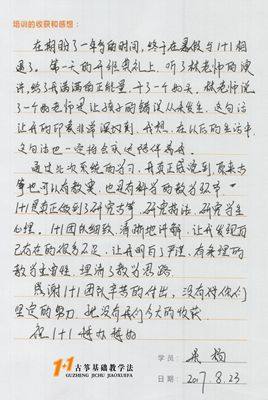 培训的收获和感想:
在相盼了一年多的时间,终于在暑假与1+1相
遇了。第一天的开班典礼上,听了林老师的演
讲,给了我满满的正能量,干了一个多天,林老师说
了一个好老师是让孩子的错误从未发生,这句话
让我的印象非常深刻,我想,在以后的生活中
这句话也一定指点我去陪伴着看
通过此次系统的学习,我真正感觉到,原来古
筝也可以有教案,也是有科学的教学环节
1+1是真正做到了研究古筝,研究技法,研究学生
心理。1+1团队细致,清晰地讲解,让我发现自
己存在的很多不足,让我明白了严谨,有条理的
教学重要性,理清了教学思路
感谢1+1团队辛苦的付出,没有你们
坚定的努力,就没有我们今天的收获
祝1+1越办越好
1+1古筝基础教学法
GUZHENG JICHU JIAOXUEFA
学员:
日期:2017.8.23